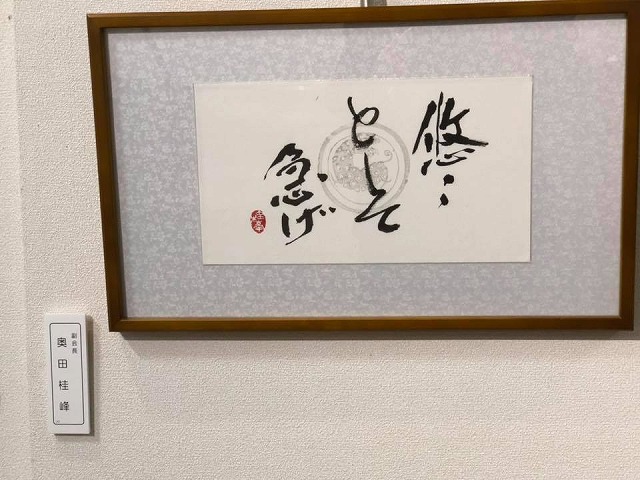 悠々
として
急げ
桂峯
副会長
奥田桂峰